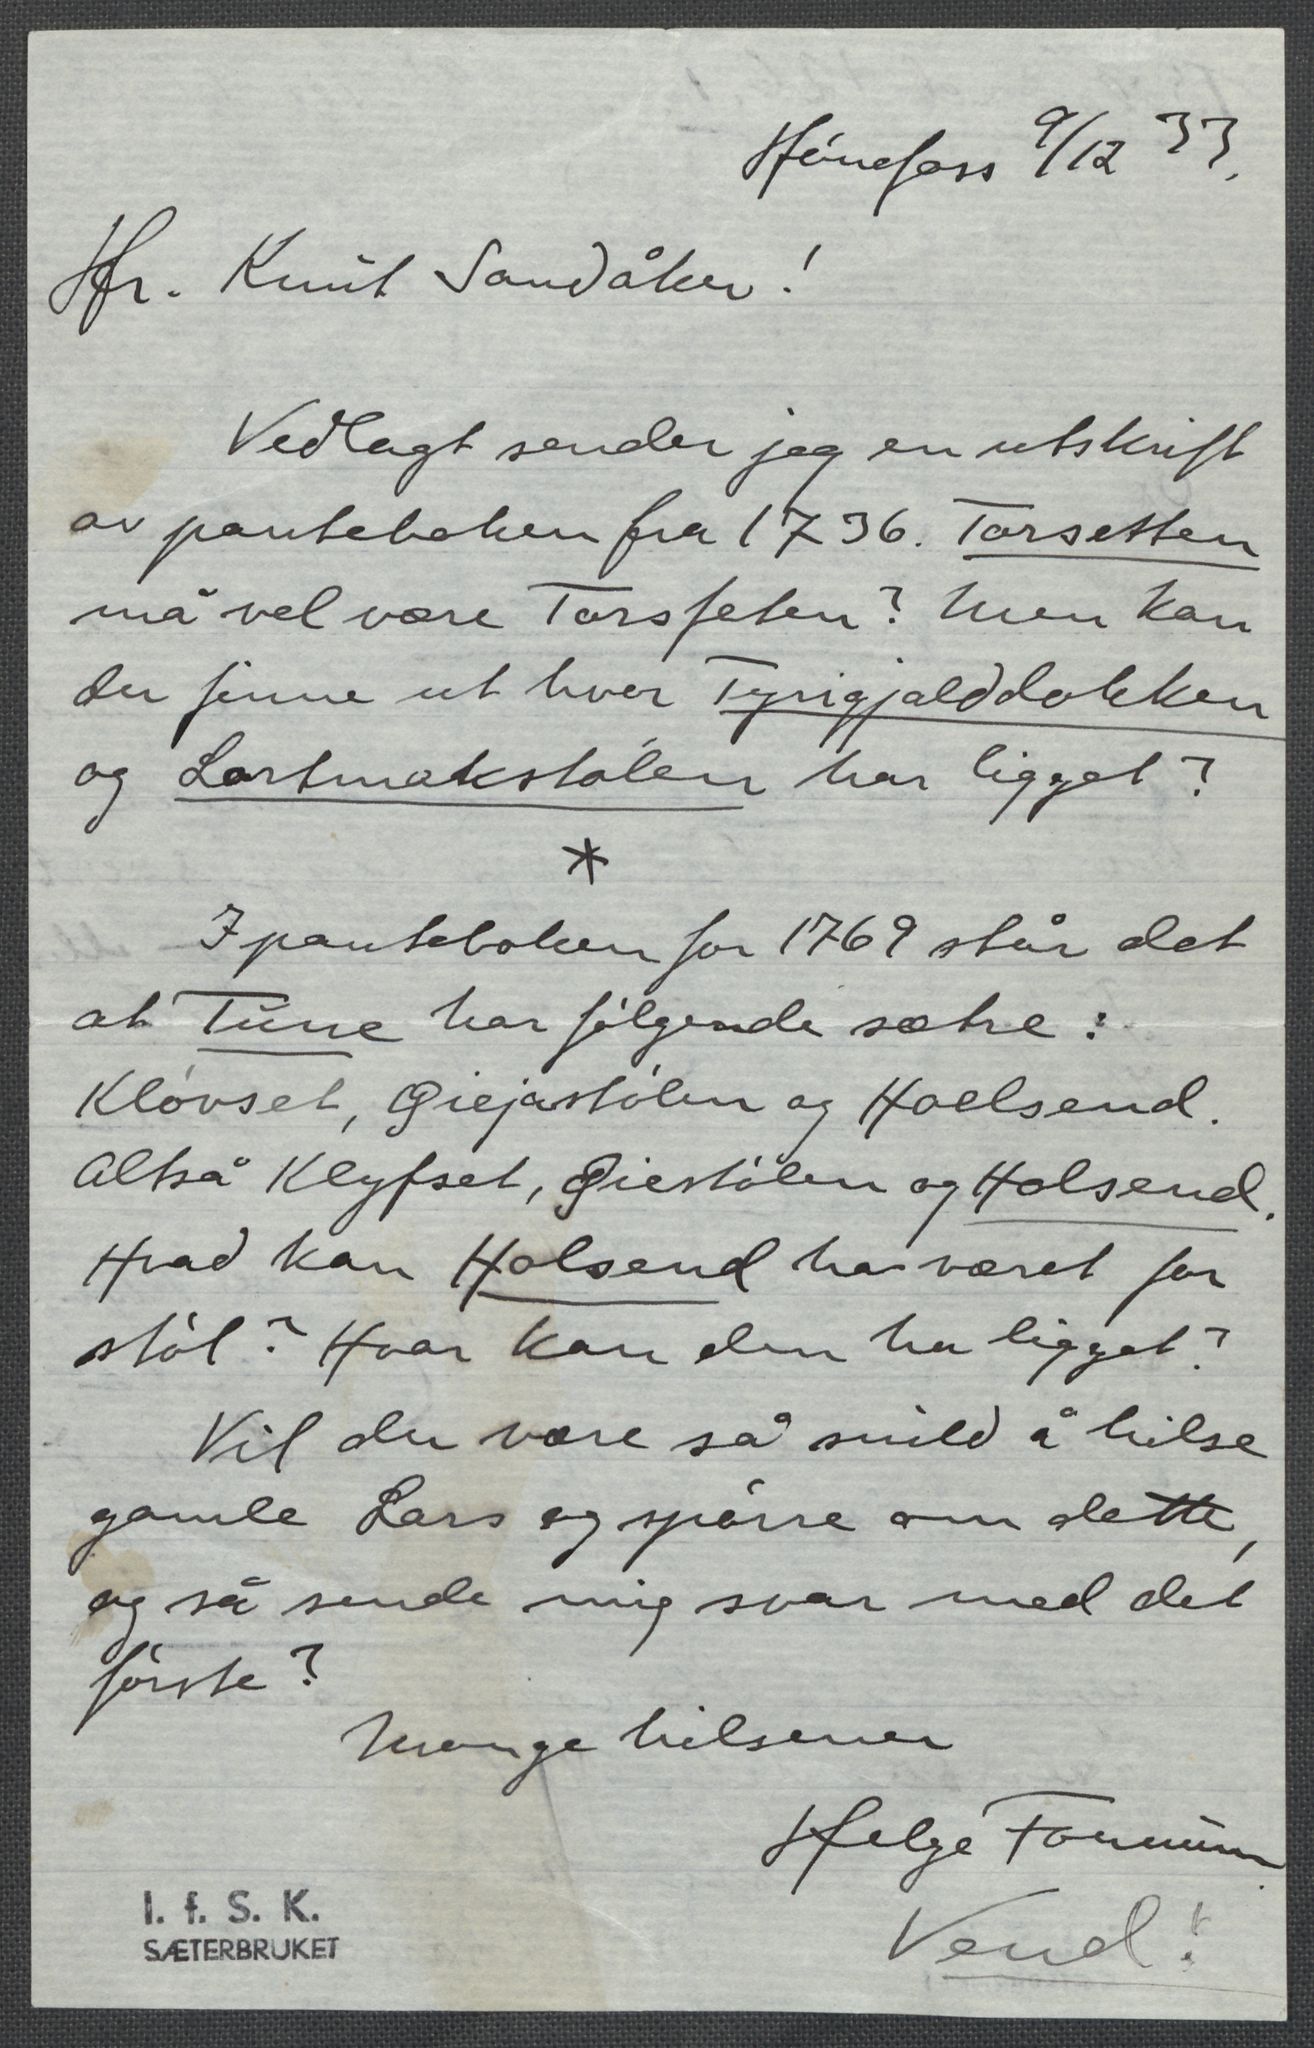 Hönefoss 9/12 33.
Hr. Knut Sandåker!
Vedlagt sender jeg en utskrift
av panteboken fra 1736. Torsetten
må vel være Torsseten? Men kan
du finne ut hvor Tyrigjalddokken
og Lortmokstölen har ligget?
*
I panteboken for 1769 står det
at Tune har fölgende sætre:
Klövset, Giejastölen og Hoelsend.
Altså Klyfset, Giestölen og Holsend.
Hvad kan Holsend ha været for
stöl? Hvor kan den ha ligget?
Vil du være så snild å hilse
gamle Lars og spörre om dette,
og så sende mig svar med det
förste?
Mange hilsener
Helge
Vend!
I. f. S. K.
SÆTERBRUKET